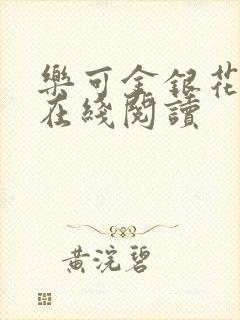 樂可金銀花
在綫閱讀
黃浣碧